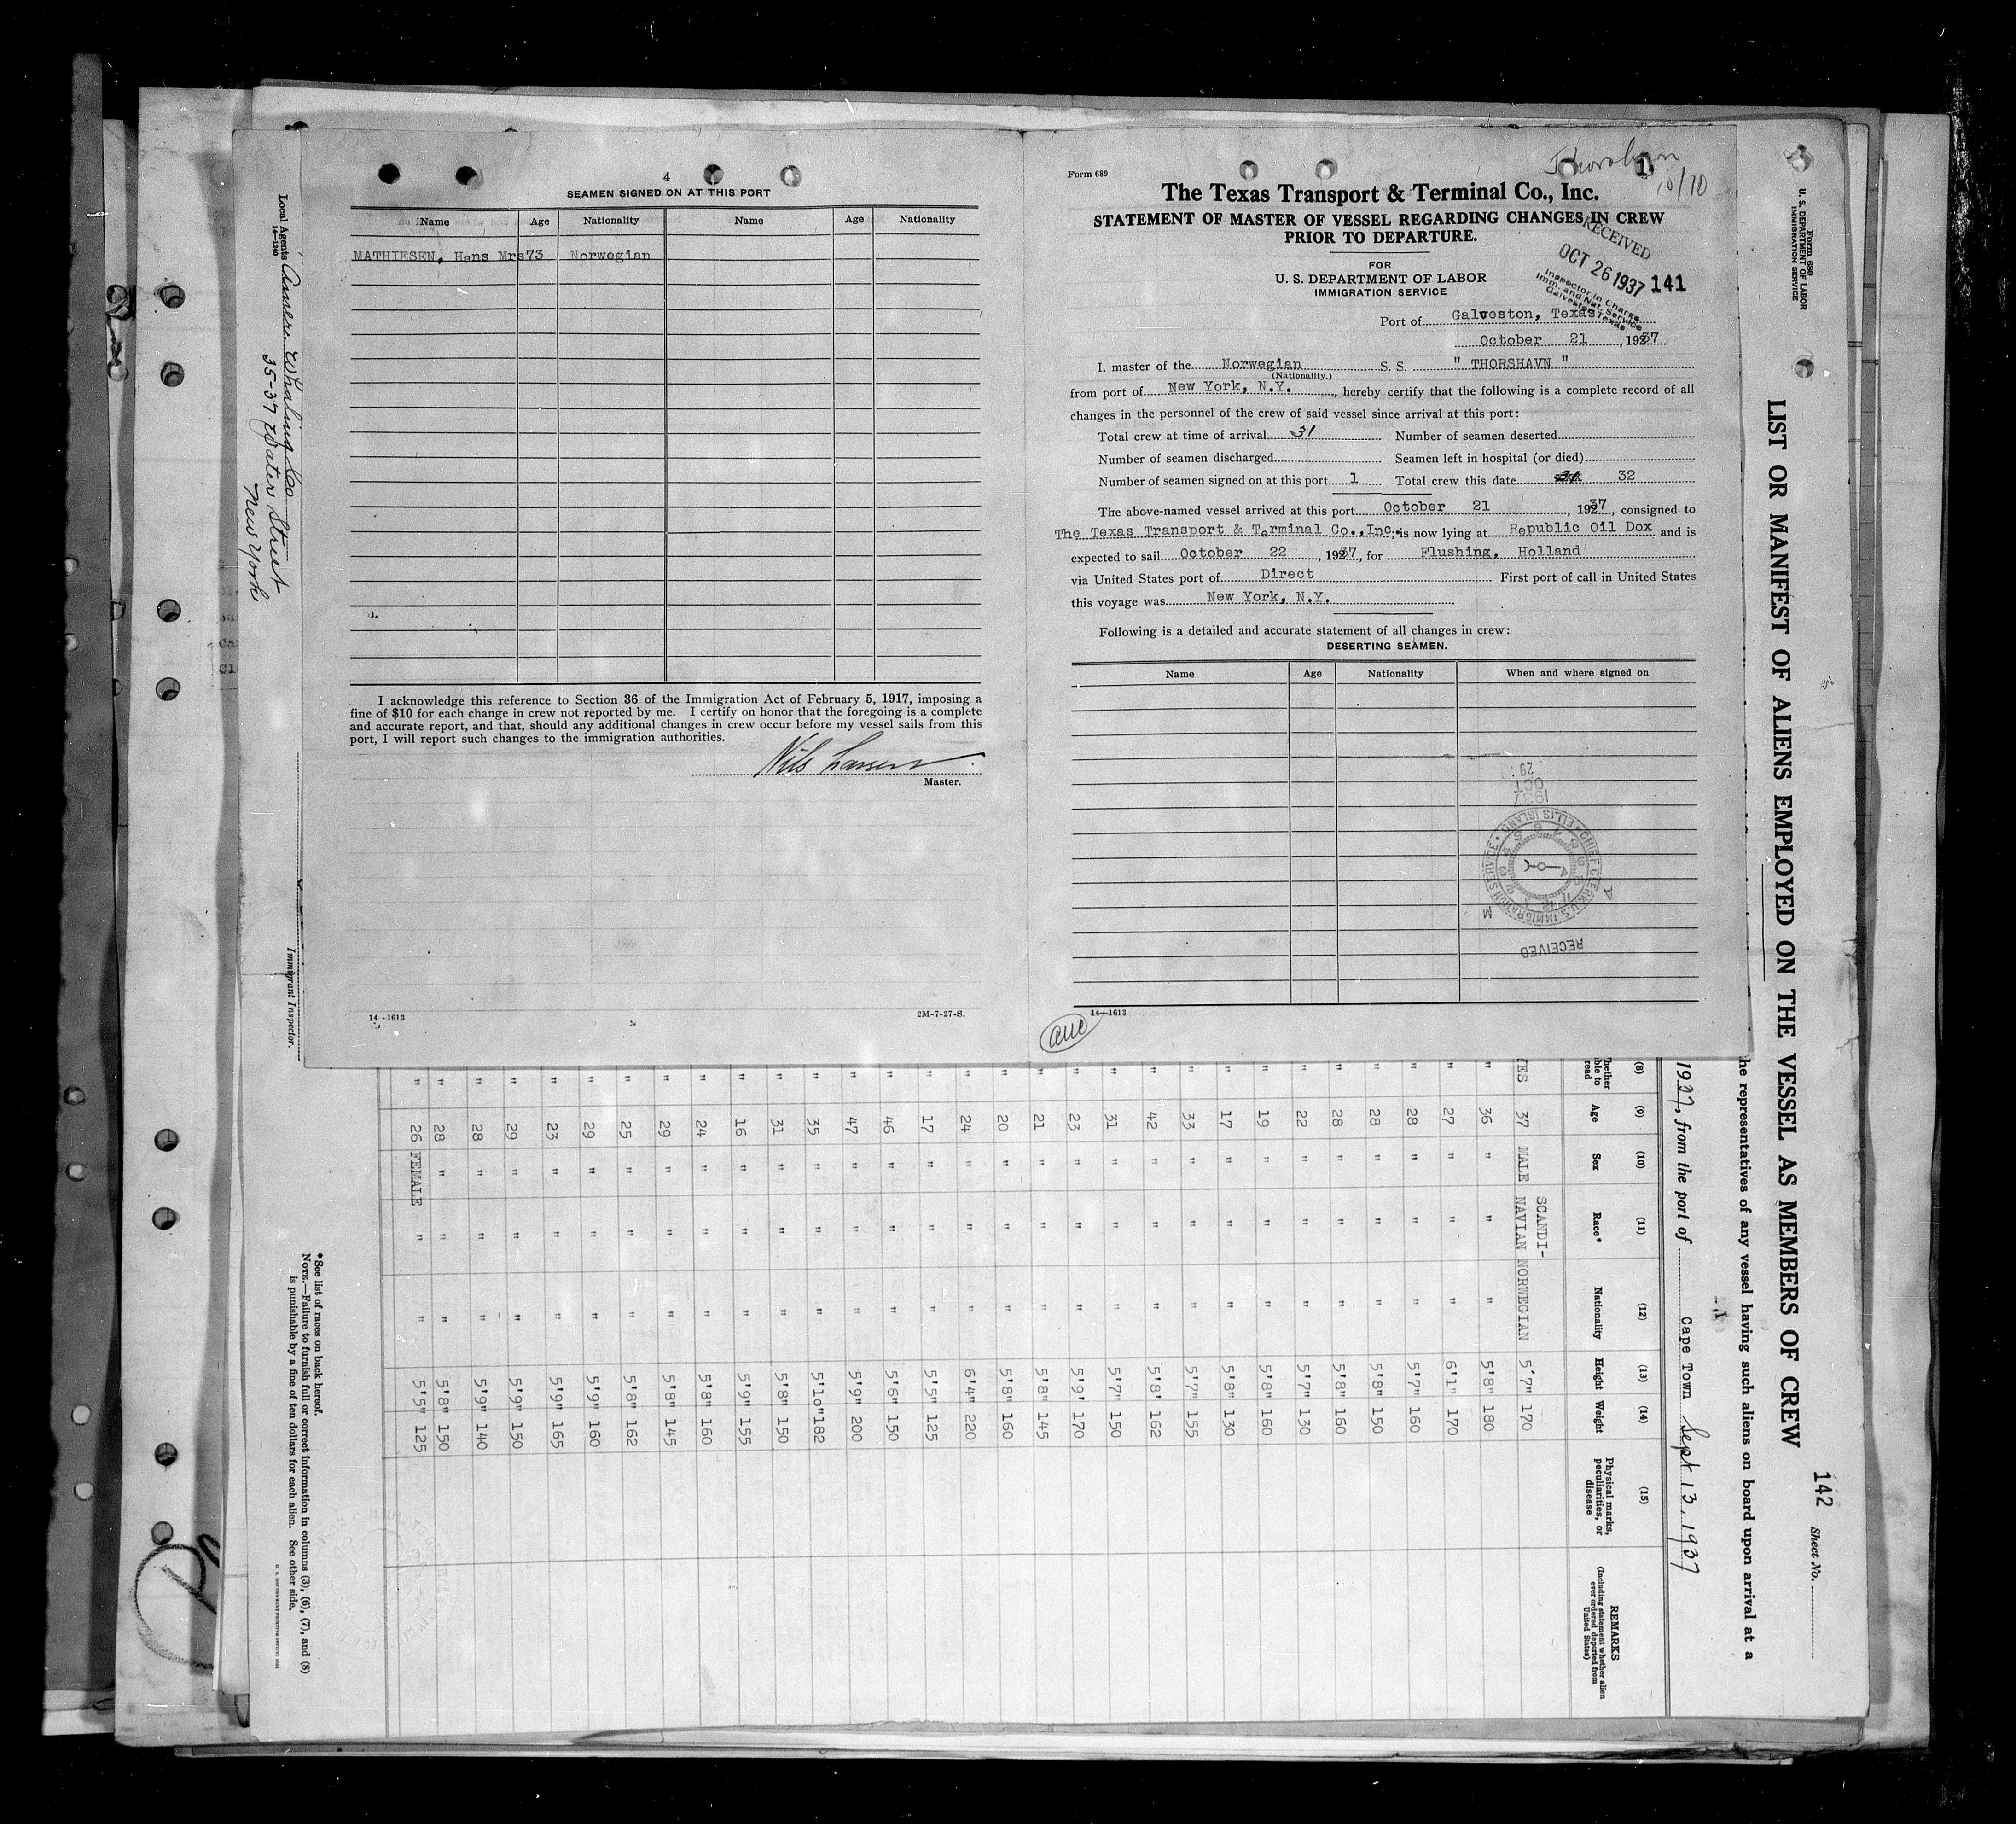 4
SEAMEN SIGNED ON AT THIS PORT
Name Age Nationality Name Age Nationality
MATHIESEN, Hans Mrs 73 Norwegian
I acknowledge this reference to Section 36 of the Immigration Act of February 5, 1917, imposing a
fine of $10 for each change in crew not reported by me. I certify on honor that the foregoing is a complete
and accurate report, and that, should any additional changes in crew occur before my vessel sails from this
port, I will report such changes to the immigration authorities.
Nils Larsen
Master.
14-1613 2M-7-27-S.
Thorshavn
10/10
1
Form 689
The Texas Transport & Terminal Co., Inc.
STATEMENT OF MASTER OF VESSEL REGARDING CHANGES IN CREW
PRIOR TO DEPARTURE.
FOR
U. S. DEPARTMENT OF LABOR
IMMIGRATION SERVICE
RECEIVED
OCT 26 1937
Inspector in Charge
Imm. and Nat. Service
Galveston, Texas
141
Port of Galveston, Texas
October 21, 1937
I, master of the Norwegian S. S. " THORSHAVN "
(Nationality.)
from port of New York, N.Y., hereby certify that the following is a complete record of all
changes in the personnel of the crew of said vessel since arrival at this port:
Total crew at time of arrival 31 Number of seamen deserted
Number of seamen discharged Seamen left in hospital (or died)
Number of seamen signed on at this port 1 Total crew this date 32
The above-named vessel arrived at this port October 21, 1937, consigned to
The Texas Transport & Terminal Co.,Inc; is now lying at Republic Oil Dox and is
expected to sail October 22, 1937, for Flushing, Holland
via United States port of Direct First port of call in United States
this voyage was New York, N.Y.
Following is a detailed and accurate statement of all changes in crew:
DESERTING SEAMEN.
Name Age Nationality When and where signed on
1937
OCT
29
CHIEF CLERK U.S. IMMIGRATION SERVICE
ELLIS ISLAND
A M
RECEIVED
14-1613
Form 680
U. S. DEPARTMENT OF LABOR
IMMIGRATION SERVICE
LIST OR MANIFEST OF ALIENS EMPLOYED ON THE VESSEL AS MEMBERS OF CREW
142
Sheet No.
the representatives of any vessel having such aliens on board upon arrival at a
1937, from the port of Cape Town Sept 13, 1937
(8) (9) (10) (11) (12) (13) (14) (15)
Whether able to read Age Sex Race* Nationality Height Weight Physical marks, peculiarities, or disease REMARKS
(Including statement whether alien ever ordered deported from United States)
YES 37 MALE SCANDI-NAVIAN NORWEGIAN 5'7" 170
" 36 " " " 5'8" 180
" 27 " " " 6'1" 170
" 28 " " " 5'7" 160
" 28 " " " 5'8" 150
" 28 " " " 5'8" 160
" 22 " " " 5'7" 130
" 19 " " " 5'8" 160
" 17 " " " 5'8" 130
" 33 " " " 5'7" 155
" 42 " " " 5'8' 162
" 31 " " " 5'7" 150
" 23 " " " 5'9' 170
" 21 " " " 5'8" 145
" 20 " " " 5'8" 160
" 24 " " " 6'4" 220
" 17 " " " 5'5" 125
" 46 " " " 5'6" 150
" 47 " " " 5'9" 200
" 35 " " " 5'10" 182
" 31 " " " 5'8" 150
" 16 " " " 5'9" 155
" 24 " " " 5'8" 160
" 29 " " " 5'8" 145
" 25 " " " 5'8" 162
" 29 " " " 5'9" 160
" 23 " " " 5'9" 165
" 29 " " " 5'9" 150
" 28 " " " 5'9" 140
" 28 " " " 5'8" 150
" 26 FEMALE " " 5'5" 125
*See list of races on back hereof.
NOTE.—Failure to furnish full or correct information in columns (3), (6), (7), and (8)
is punishable by a fine of ten dollars for each alien. See other side.
Immigrant Inspector.
Local Agents Whaling Co
35-37 Water Street
New York
14-1240